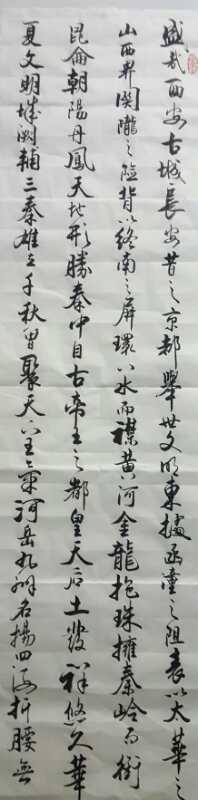 盛哉西安古城長安昔之京都舉世文明東據函潼之阻表以太華之
山西界關隴之險背以終南之屏環八水而襟黄河金龍抱珠擁秦岭而銜
昆侖朝陽丹鳳天地形勝秦中自古帝王之都皇天后土發祥悠久華
夏文明城阙輔三秦雄立千秋曾聚天下王之氣河岳九州名揚四海折腰無